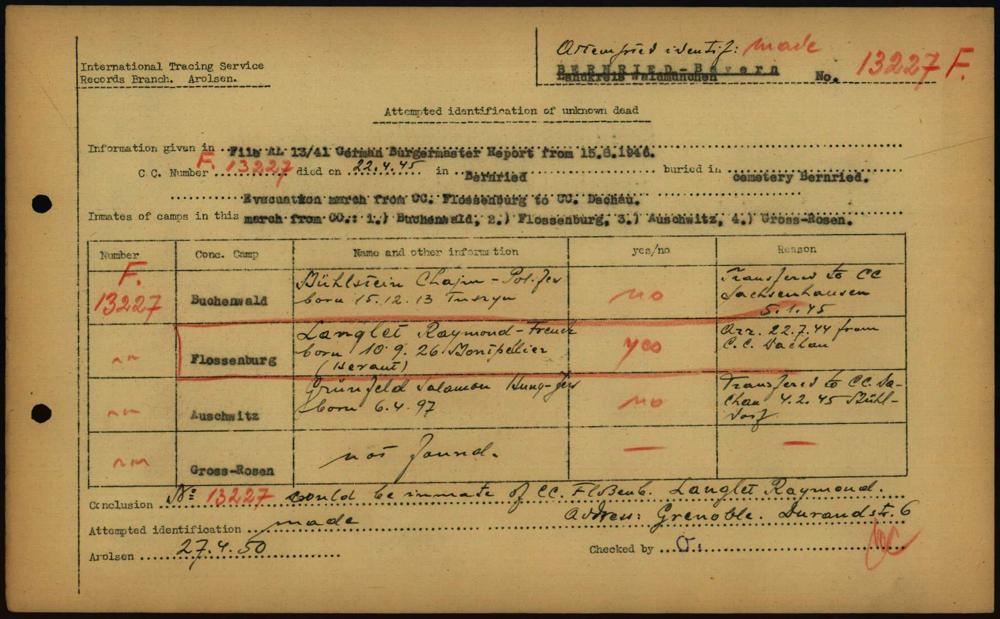 International Tracing Service
Records Branch. Arolsen.
Attempted identif: made
BERNRIED-Bayern
Landkreis Waldmünchen No. 13227 F.
Attempted identification of unknown dead
Information given in File AL 13/41 German Burgermaster Report from 15.6.1946.
C.C. Number F. 13227 died on 22.4.45 in Bernried buried in cemetery Bernried.
Evacuation march from CC. Flossenburg to CC. Dachau.
Inmates of camps in this march from CC.: 1.) Buchenwald, 2.) Flossenburg, 3.) Auschwitz, 4.) Gross-Rosen.
Number Conc. Camp Name and other information yes/no Reason
F. 13227 Buchenwald Mühlstein Chajm - Pol. Jew born 15.12.13 Tuszyn no Transfered to CC Sachsenhausen 5.1.45
" " Flossenburg Langlet Raymond - French born 10.9.26 Montpellier (Heraut) yes Arr. 22.7.44 from C.C. Dachau
" " Auschwitz Grünfeld Salamon Hung-Jew born 6.4.97 no Transfered to CC. Dachau 4.2.45 Mühldorf
" " Gross-Rosen not found. — —
Conclusion No 13227 could be inmate of CC. Floßenb. Langlet Raymond.
Address: Grenoble. Durandstr. 6
Attempted identification made
Arolsen 27.4.50 Checked by